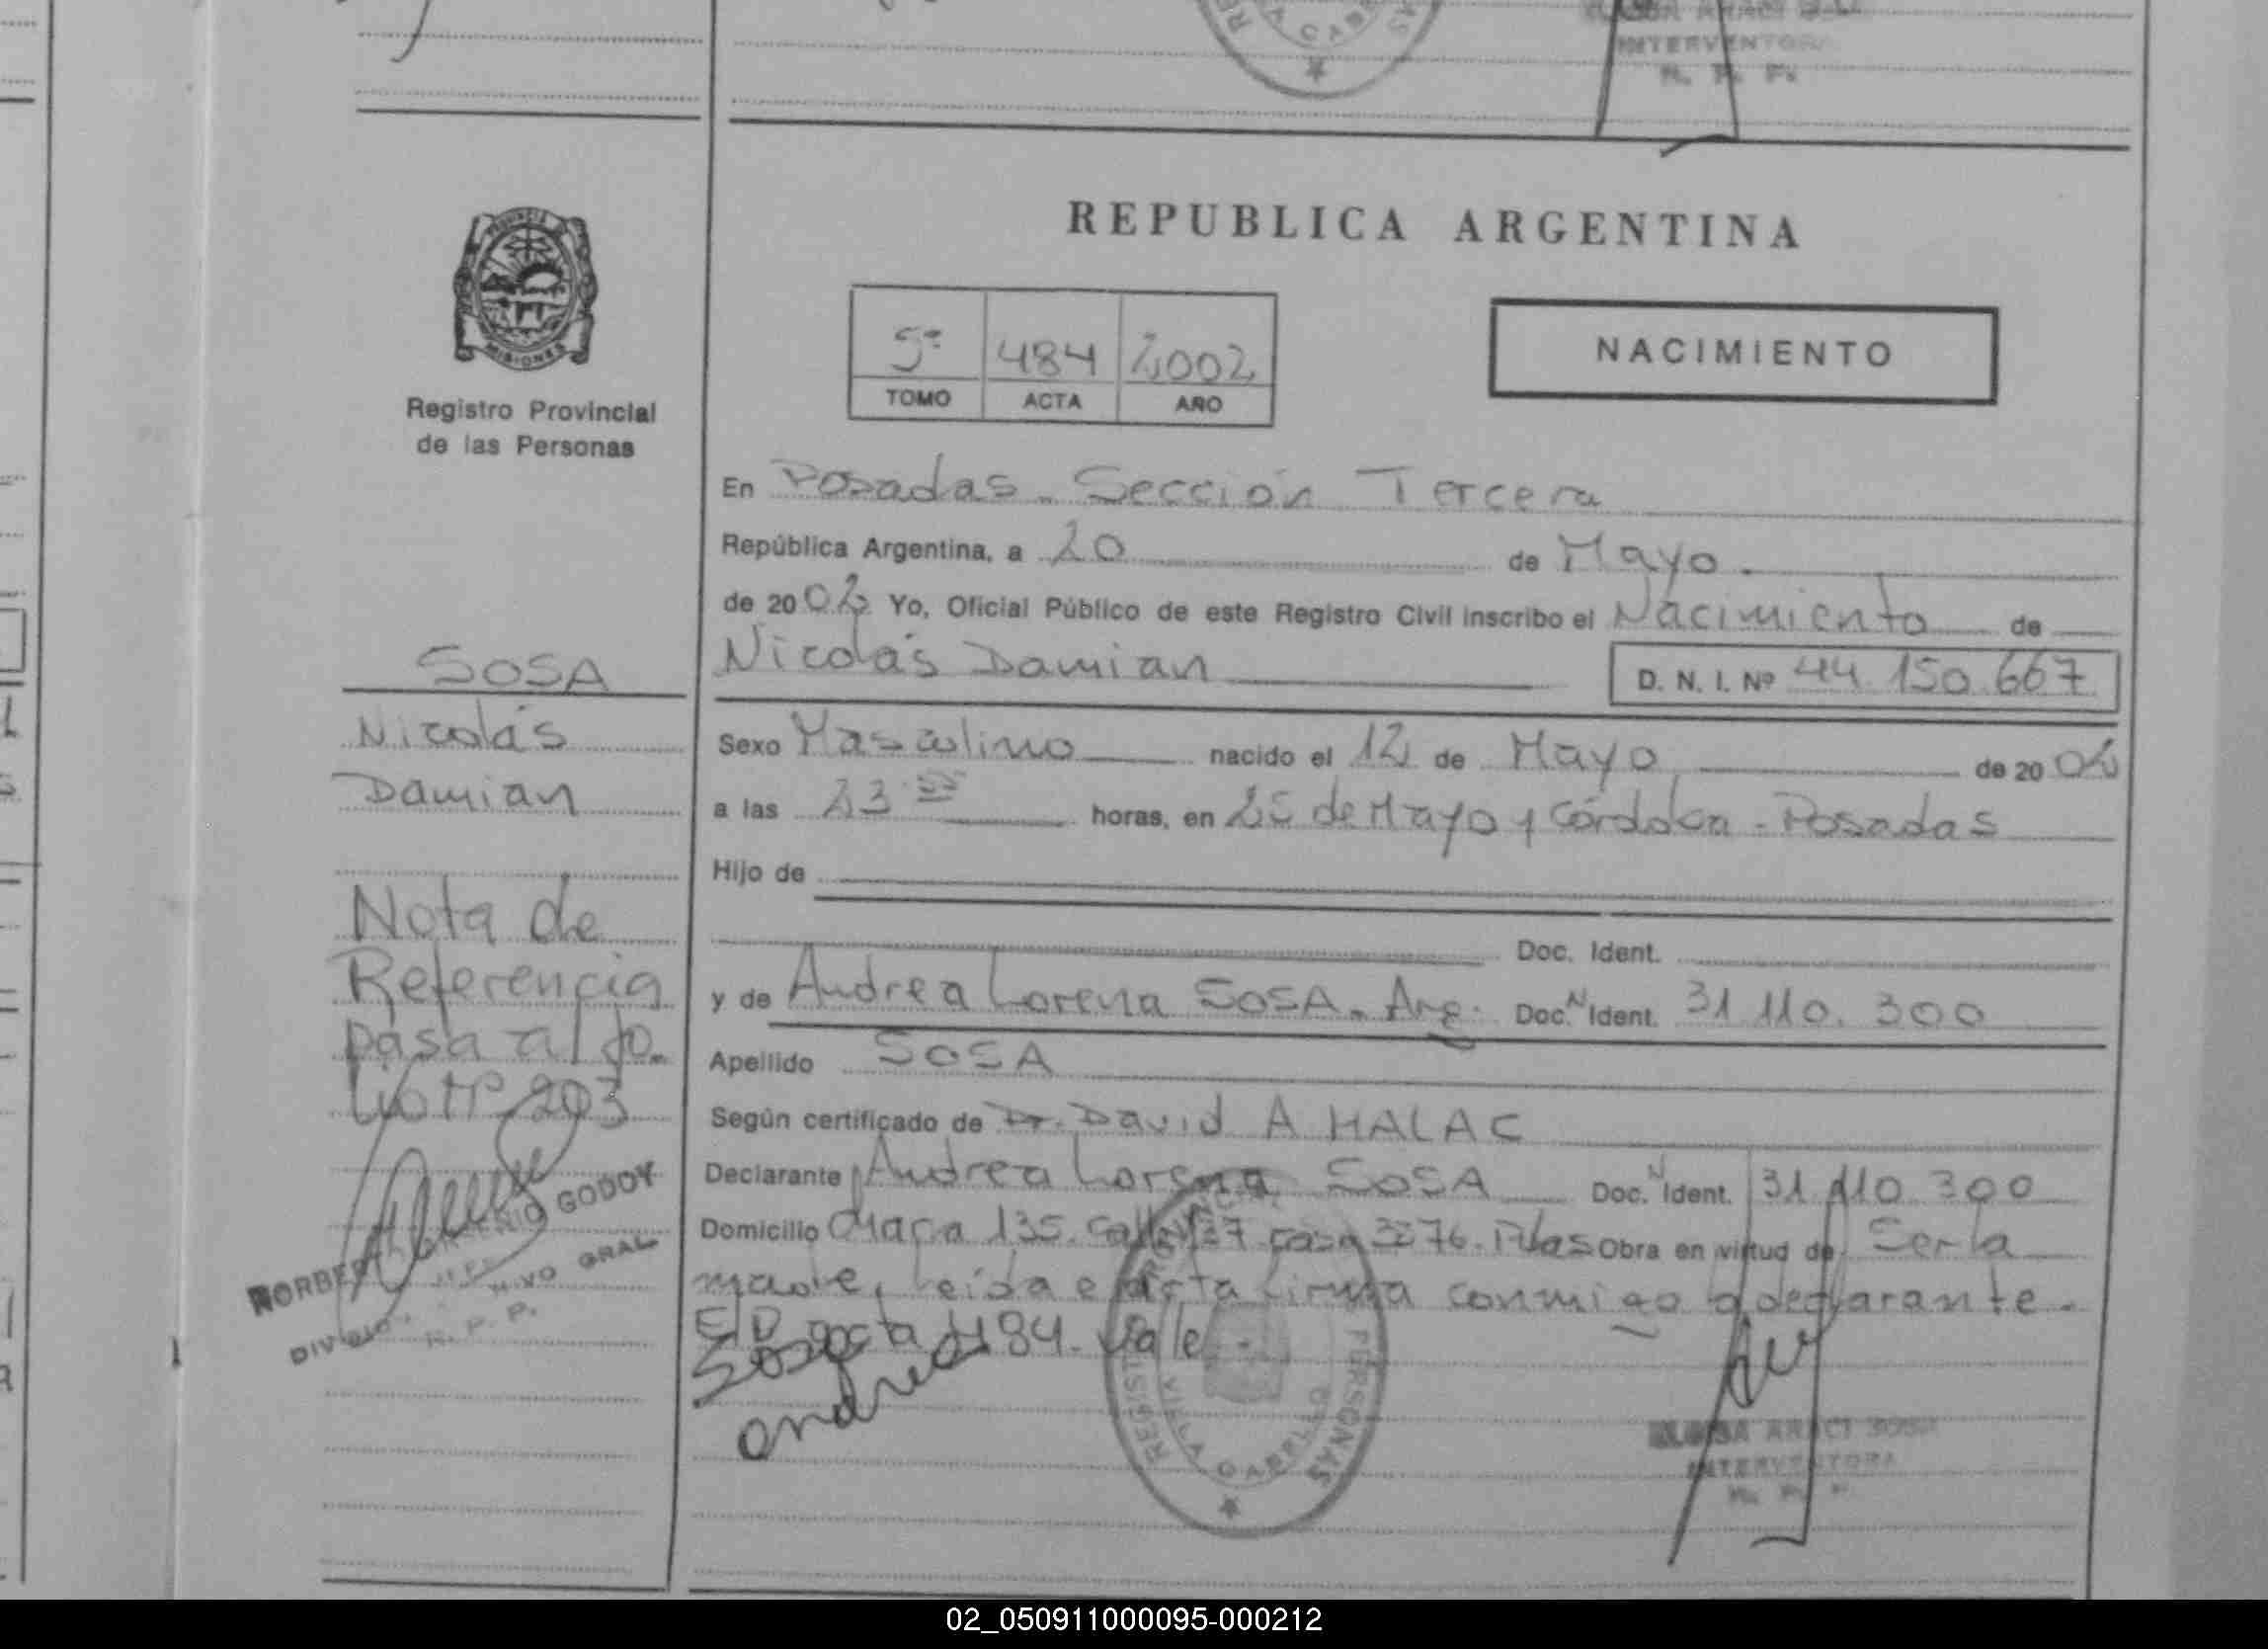 INTERVENTORA
R. P. P.
REPUBLICA ARGENTINA
PROVINCIA
MISIONES
5º 484 2002
TOMO ACTA AÑO
NACIMIENTO
Registro Provincial
de las Personas
En Posadas - Sección Tercera
República Argentina, a 20 de Mayo.
de 2002 Yo, Oficial Público de este Registro Civil inscribo el Nacimiento de
SOSA
Nicolás Damian D. N. I. Nº 44.150.667
Nicolás
Damian
Sexo Masculino nacido el 12 de Mayo de 2002
a las 23 horas, en 25 de Mayo y Córdoba - Posadas
Hijo de
Doc. Ident.
Nota de
Referencia
pasa al fo.
Nº 203
y de Andrea Lorena SOSA. Arg. Doc. N Ident. 31.110.300
Apellido SOSA
Según certificado de Dr. David A HALAC
Declarante Andrea Lorena SOSA Doc. N Ident. 31.110.300
Domicilio Chacra 135. Calle 137 casa 3276. Pdas Obra en virtud de Ser la
madre, leída el acta firma conmigo declarante.
E/D acta 484. Vale.
Sosa
andrea
GODOY
DIVISION GRAL
R. P. P.
VILLA CABELLO
PERSONAS
ARACI SOSA
INTERVENTORA
R. P. P.
02_050911000095-000212